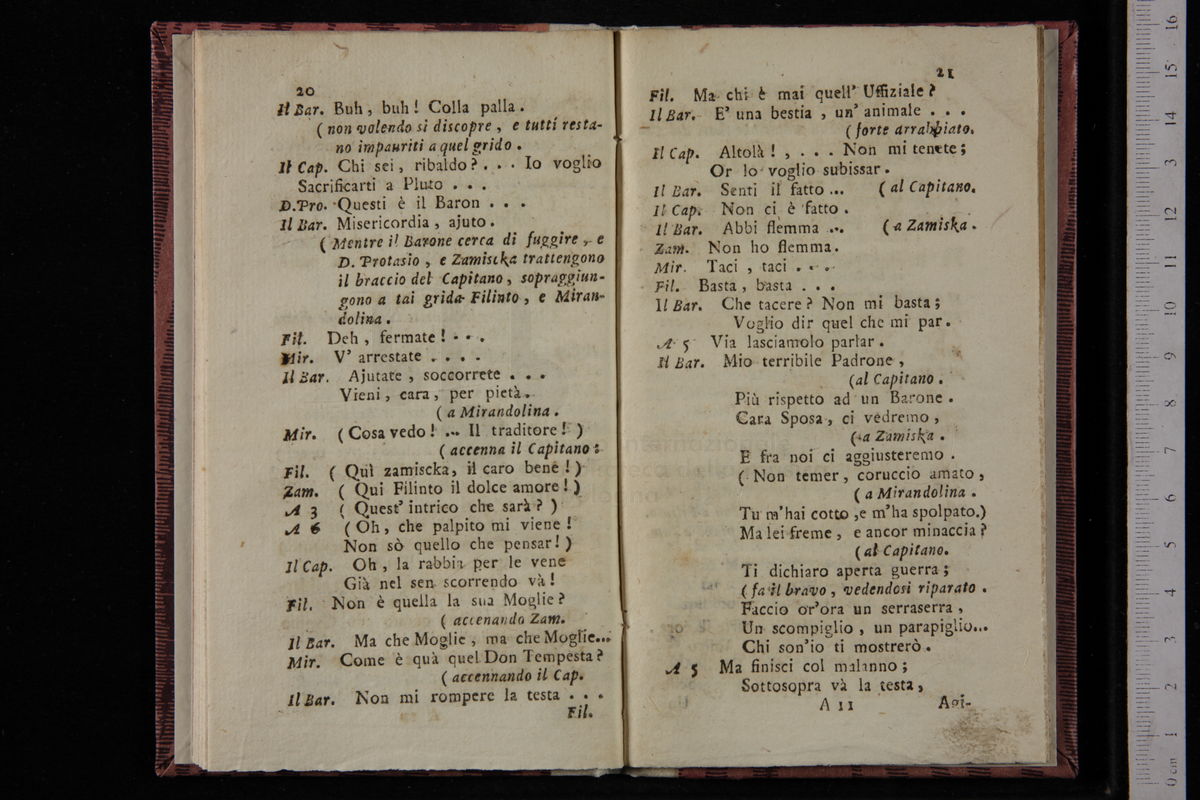 20
Il Bar. Buh, buh! Colla palla.
(non volendo si discopre, e tutti resta-
no impauriti a quel grido.
Il Cap. Chi sei, ribaldo? . . . Io voglio
Sacrificarti a Pluto . . .
D.Pro. Questi è il Baron . . .
Il Bar. Misericordia, ajuto.
(Mentre il Barone cerca di fuggire, e
D. Protasio, e Zamiscka trattengono
il braccio del Capitano, sopraggiun-
gono a tai grida Filinto, e Miran-
dolina.
Fil. Deh, fermate! . . .
Mir. V' arrestate . . . .
Il Bar. Ajutate, soccorrete . . .
Vieni, cara, per pietà.
(a Mirandolina.
Mir. (Cosa vedo! ... Il traditore!)
(accenna il Capitano:
Fil. (Quì zamiscka, il caro bene!)
Zam. (Qui Filinto il dolce amore!)
A 3 (Quest' intrico che sarà?)
A 6 (Oh, che palpito mi viene!
Non sò quello che pensar!)
Il Cap. Oh, la rabbia per le vene
Già nel sen scorrendo và!
Fil. Non è quella la sua Moglie?
(accenando Zam.
Il Bar. Ma che Moglie, ma che Moglie...
Mir. Come è quà quel Don Tempesta?
(accennando il Cap.
Il Bar. Non mi rompere la testa . . .
Fil.
21
Fil. Ma chi è mai quell' Uffiziale?
Il Bar. E' una bestia, un' animale . . .
(forte arrabbiato.
Il Cap. Altolà!, . . . Non mi tenete;
Or lo voglio subissar.
Il Bar. Senti il fatto ... (al Capitano.
Il Cap. Non ci è fatto.
Il Bar. Abbi flemma ... (a Zamiska.
Zam. Non ho flemma.
Mir. Taci, taci . . .
Fil. Basta, basta . . .
Il Bar. Che tacere? Non mi basta;
Voglio dir quel che mi par.
A 5 Via lasciamolo parlar.
Il Bar. Mio terribile Padrone,
(al Capitano.
Più rispetto ad un Barone.
Cara Sposa, ci vedremo,
(a Zamiska.
E fra noi ci aggiusteremo.
(Non temer, coruccio amato,
(a Mirandolina.
Tu m'hai cotto, e m'ha spolpato.)
Ma lei freme, e ancor minaccia?
(al Capitano.
Ti dichiaro aperta guerra;
(fa il bravo, vedendosi riparato.
Faccio or'ora un serraserra,
Un scompiglio, un parapiglio...
Chi son'io ti mostrerò.
A 5 Ma finisci col malanno;
Sottosopra và la testa,
A 11 Agi-
0 cm 1 2 3 4 5 6 7 8 9 10 11 12 13 14 15 16